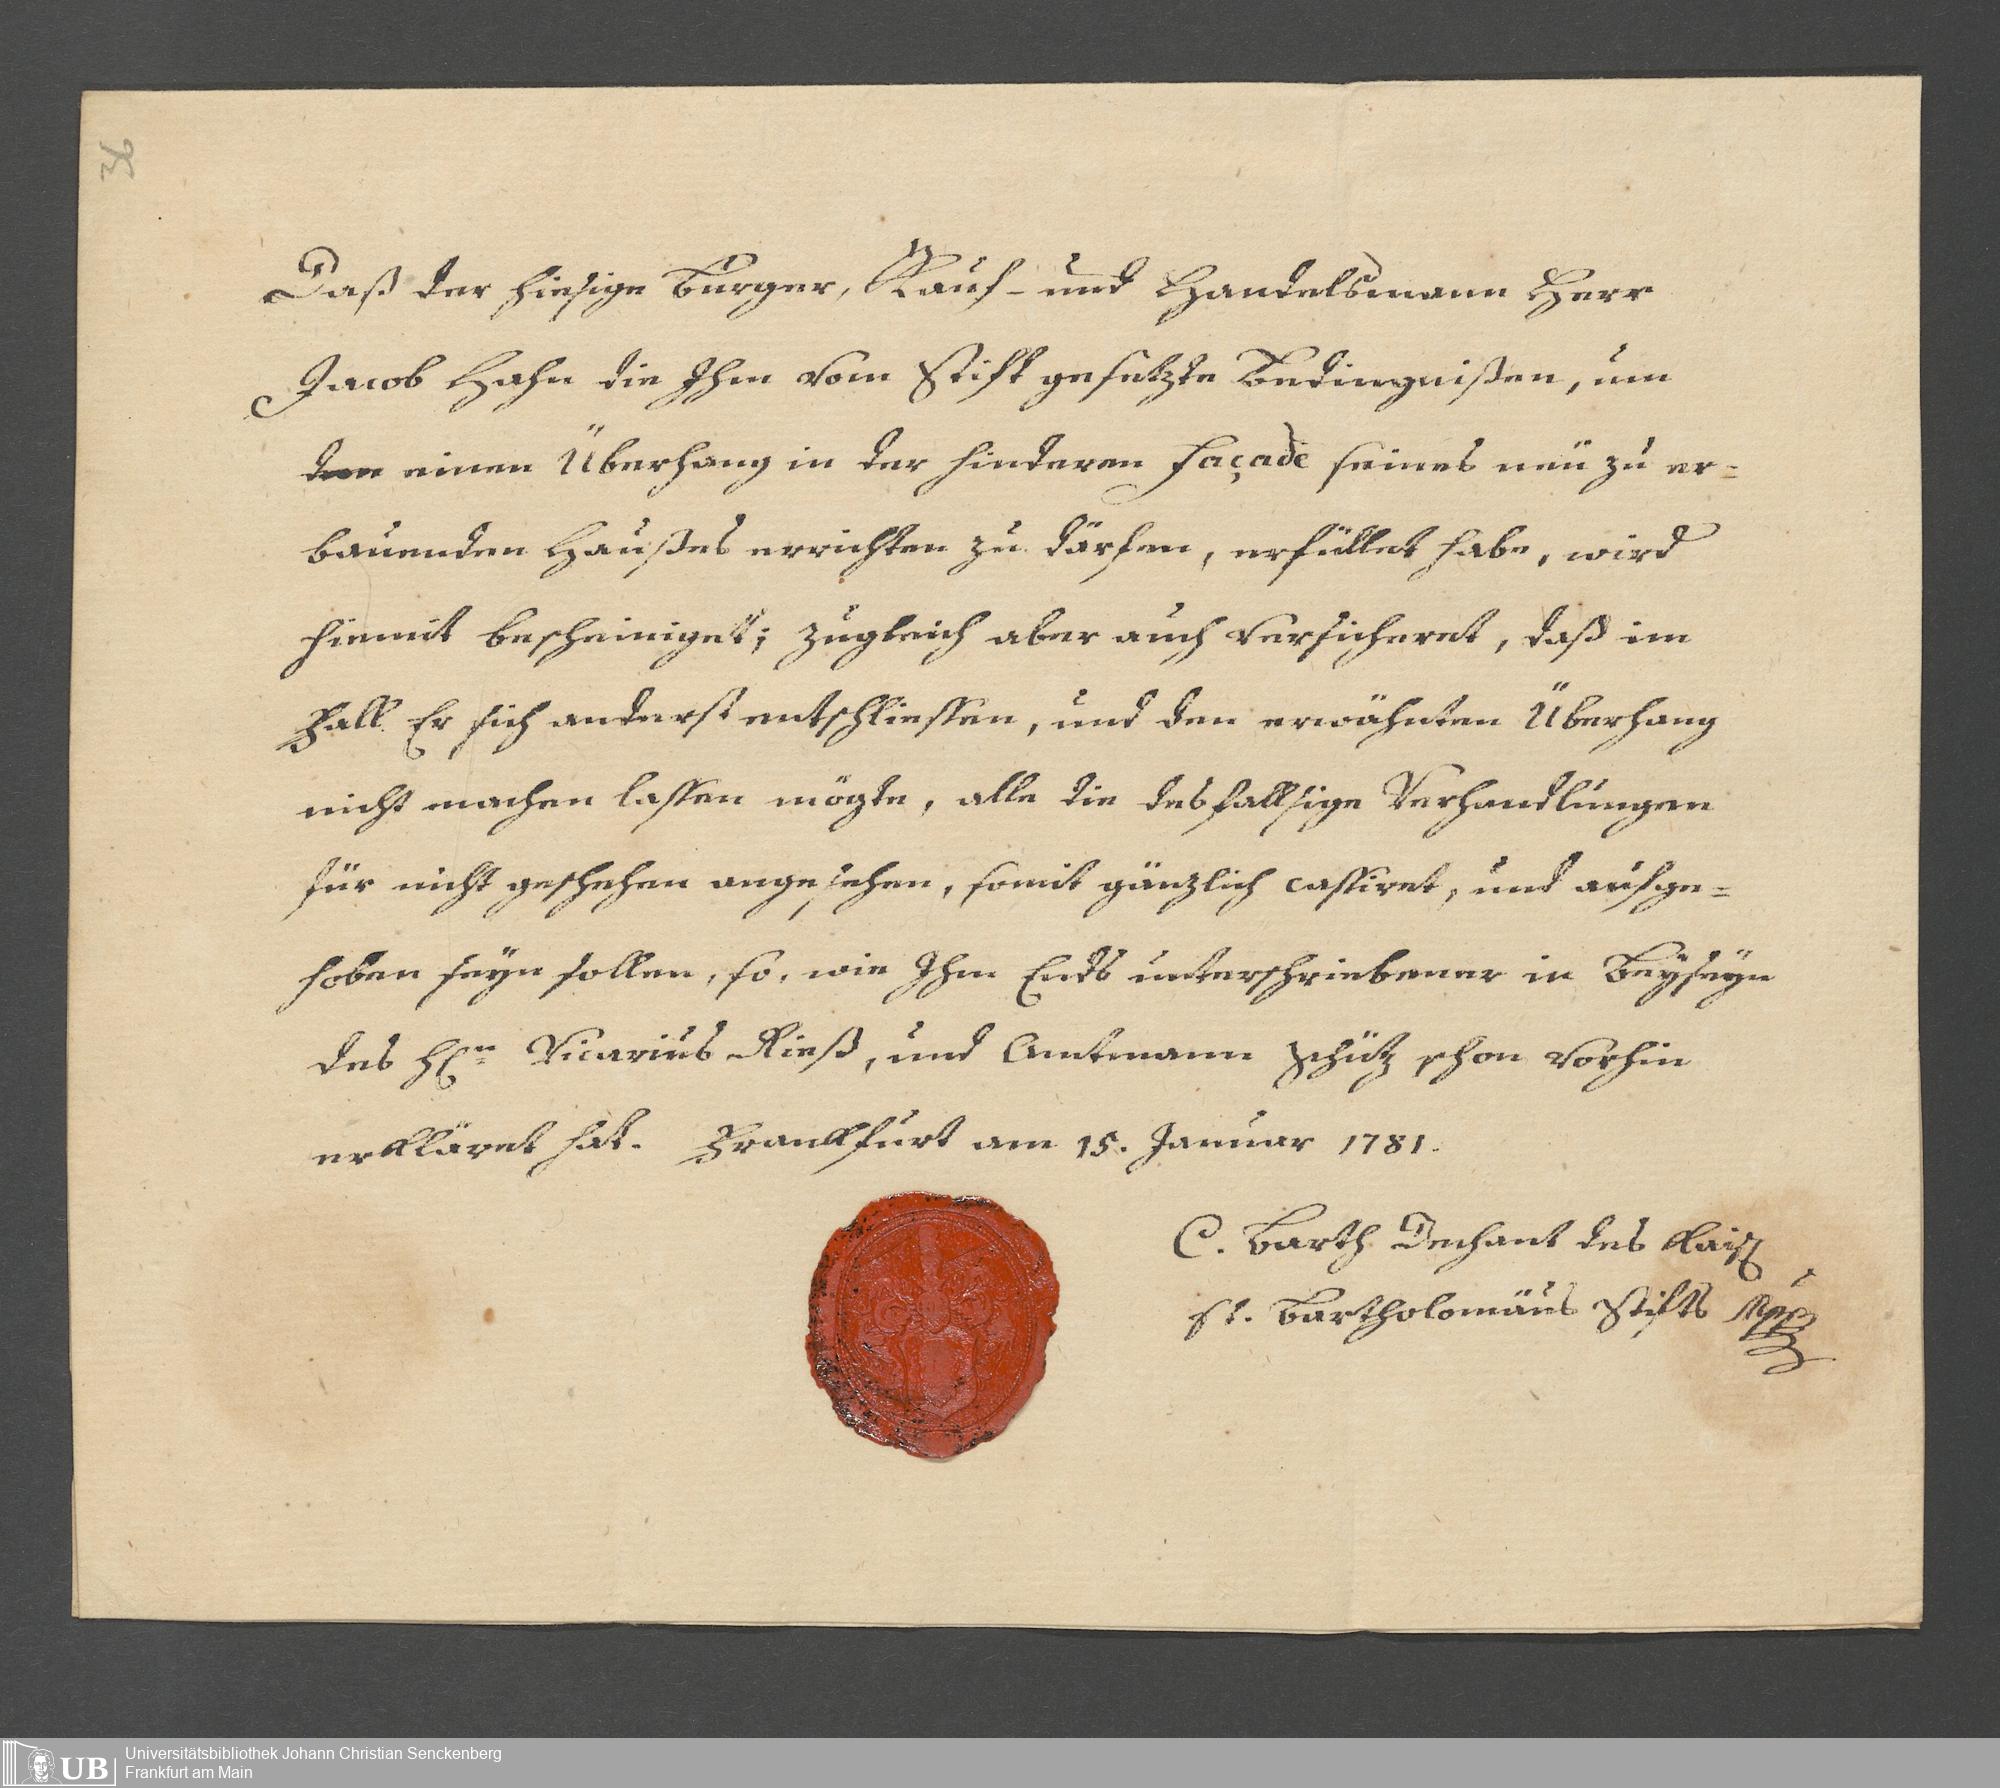 36
Daß der hiesige Burger, Kauf- und Handelsmann Herr
Jacob Hahn die Ihm vom Stift gesetzte Bedingnißen, um
den einen Überhang in der hinderen façade seines neü zu er=
bauenden Haußes errichten zu därfen, erfüllet habe, wird
hiemit bescheiniget; zugleich aber auch versicheret, daß im
Fall Er sich anderst entschliessen, und den erwähnten Überhang
nicht machen lassen mögte, alle die desfallsige Verhandlungen
für nicht geschehen angesehen, somit gänzlich cassiret, und aufge=
hoben seyn sollen, so, wie Ihm Ends unterschriebener in Beyseyn
des H.n Vicarius Rieß, und Amtmann Schütz schon vorhin
erkläret hat. Franckfurt am 15. Januar 1781.
C. Barth Dechant des Kais.
St. Bartholomäus Stifts Mpp
UB
Universitätsbibliothek Johann Christian Senckenberg
Frankfurt am Main